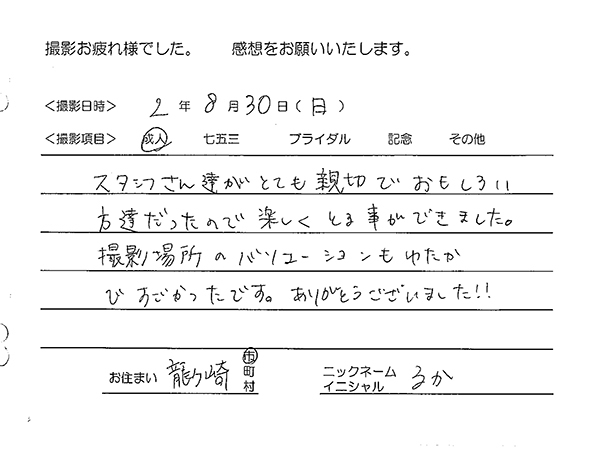 撮影お疲れ様でした。　感想をお願いいたします。
＜撮影日時＞ 2 年 8 月 30 日（日）
＜撮影項目＞ 成人　七五三　ブライダル　記念　その他
スタッフさん達がとても親切でおもしろい
方達だったので楽しくとる事ができました。
撮影場所のバリエーションもゆたか
ですごかったです。ありがとうございました!!
お住まい 龍ケ崎 市町村　ニックネーム イニシャル るか